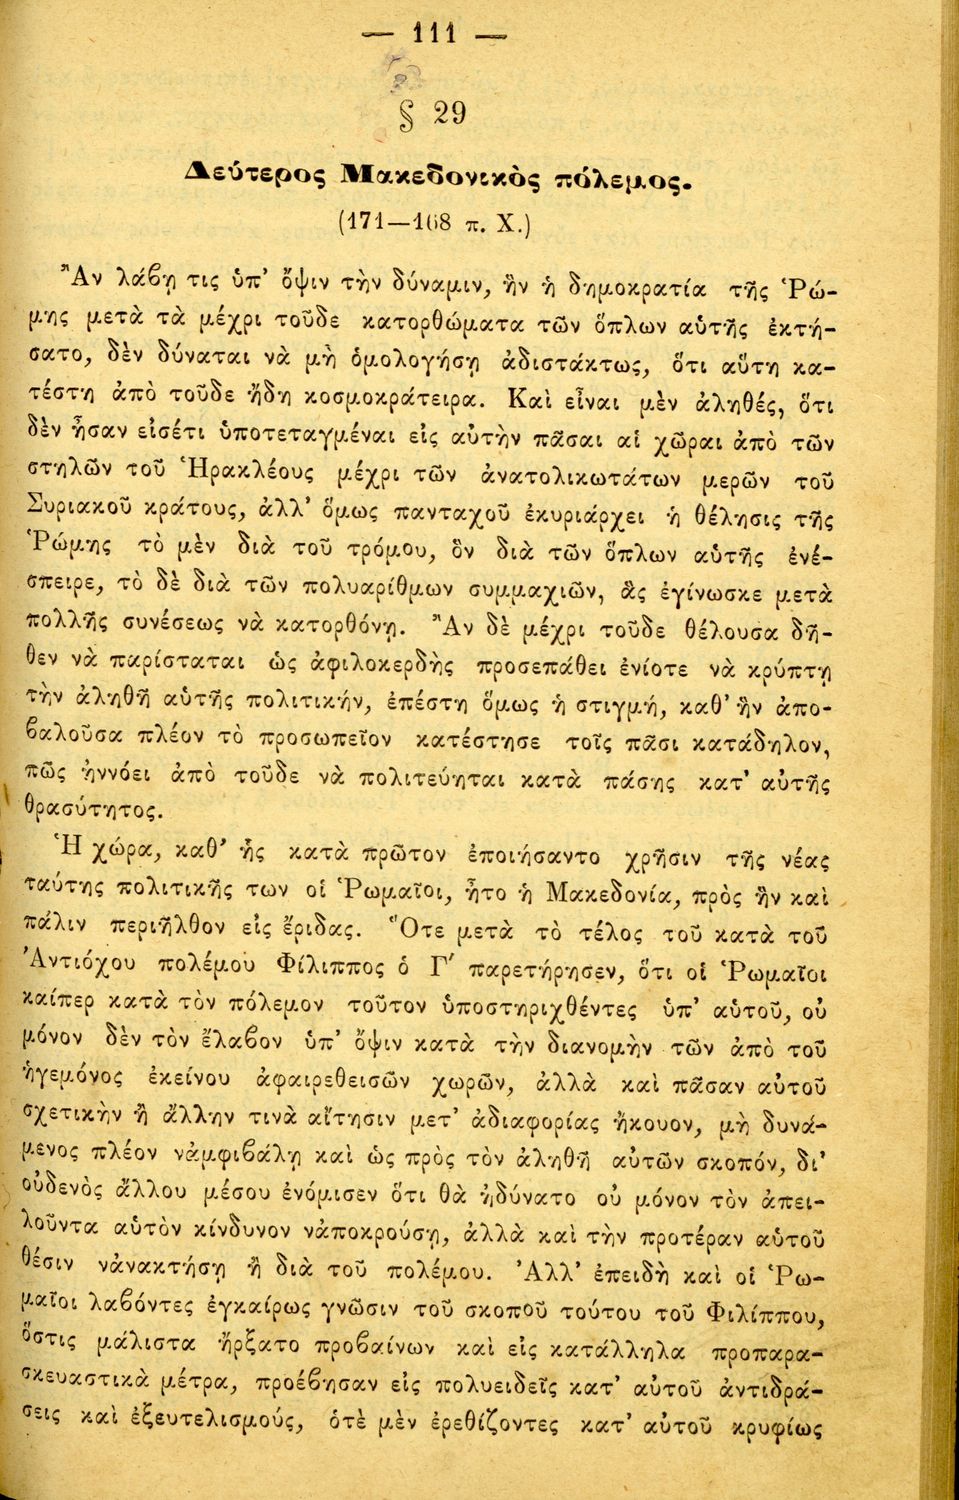 — 111 —
§ 29
Δεύτερος Μακεδονικὸς πόλεμος.
(171—168 π. Χ.)
Ἂν λάβῃ τις ὑπ' ὄψιν τὴν δύναμιν, ἣν ἡ δημοκρατία τῆς Ῥώ-
μης μετὰ τὰ μέχρι τοῦδε κατορθώματα τῶν ὅπλων αὑτῆς ἐκτή-
σατο, δὲν δύναται νὰ μὴ ὁμολογήσῃ ἀδιστάκτως, ὅτι αὕτη κα-
τέστη ἀπὸ τοῦδε ἤδη κοσμοκράτειρα. Καὶ εἶναι μὲν ἀληθές, ὅτι
δὲν ἦσαν εἰσέτι ὑποτεταγμέναι εἰς αὐτὴν πᾶσαι αἱ χῶραι ἀπὸ τῶν
στηλῶν τοῦ Ἡρακλέους μέχρι τῶν ἀνατολικωτάτων μερῶν τοῦ
Συριακοῦ κράτους, ἀλλ' ὅμως πανταχοῦ ἐκυριάρχει ἡ θέλησις τῆς
Ῥώμης τὸ μὲν διὰ τοῦ τρόμου, ὃν διὰ τῶν ὅπλων αὑτῆς ἐνέ-
σπειρε, τὸ δὲ διὰ τῶν πολυαρίθμων συμμαχιῶν, ἃς ἐγίνωσκε μετὰ
πολλῆς συνέσεως νὰ κατορθόνῃ. Ἂν δὲ μέχρι τοῦδε θέλουσα δῆ-
θεν νὰ παρίσταται ὡς ἀφιλοκερδὴς προσεπάθει ἐνίοτε νὰ κρύπτῃ
τὴν ἀληθῆ αὑτῆς πολιτικήν, ἐπέστη ὅμως ἡ στιγμή, καθ' ἣν ἀπο-
βαλοῦσα πλέον τὸ προσωπεῖον κατέστησε τοῖς πᾶσι κατάδηλον,
πῶς ἠννόει ἀπὸ τοῦδε νὰ πολιτεύηται κατὰ πάσης κατ' αὐτῆς
θρασύτητος.
Ἡ χώρα, καθ' ἧς κατὰ πρῶτον ἐποιήσαντο χρῆσιν τῆς νέας
ταύτης πολιτικῆς των οἱ Ῥωμαῖοι, ἦτο ἡ Μακεδονία, πρὸς ἣν καὶ
πάλιν περιῆλθον εἰς ἔριδας. Ὅτε μετὰ τὸ τέλος τοῦ κατὰ τοῦ
Ἀντιόχου πολέμου Φίλιππος ὁ Γ' παρετήρησεν, ὅτι οἱ Ῥωμαῖοι
καίπερ κατὰ τὸν πόλεμον τοῦτον ὑποστηριχθέντες ὑπ' αὐτοῦ, οὐ
μόνον δὲν τὸν ἔλαβον ὑπ' ὄψιν κατὰ τὴν διανομὴν τῶν ἀπὸ τοῦ
ἡγεμόνος ἐκείνου ἀφαιρεθεισῶν χωρῶν, ἀλλὰ καὶ πᾶσαν αὐτοῦ
σχετικὴν ἢ ἄλλην τινὰ αἴτησιν μετ' ἀδιαφορίας ἤκουον, μὴ δυνά-
μενος πλέον νἀμφιβάλῃ καὶ ὡς πρὸς τὸν ἀληθῆ αὐτῶν σκοπόν, δι'
οὐδενὸς ἄλλου μέσου ἐνόμισεν ὅτι θὰ ἠδύνατο οὐ μόνον τὸν ἀπει-
λοῦντα αὑτὸν κίνδυνον νἀποκρούσῃ, ἀλλὰ καὶ τὴν προτέραν αὑτοῦ
θέσιν νἀνακτήσῃ ἢ διὰ τοῦ πολέμου. Ἀλλ' ἐπειδὴ καὶ οἱ Ῥω-
μαῖοι λαβόντες ἐγκαίρως γνῶσιν τοῦ σκοποῦ τούτου τοῦ Φιλίππου,
ὅστις μάλιστα ἤρξατο προβαίνων καὶ εἰς κατάλληλα προπαρα-
σκευαστικὰ μέτρα, προέβησαν εἰς πολυειδεῖς κατ' αὐτοῦ ἀντιδρά-
σεις καὶ ἐξευτελισμούς, ὁτὲ μὲν ἐρεθίζοντες κατ' αὐτοῦ κρυφίως